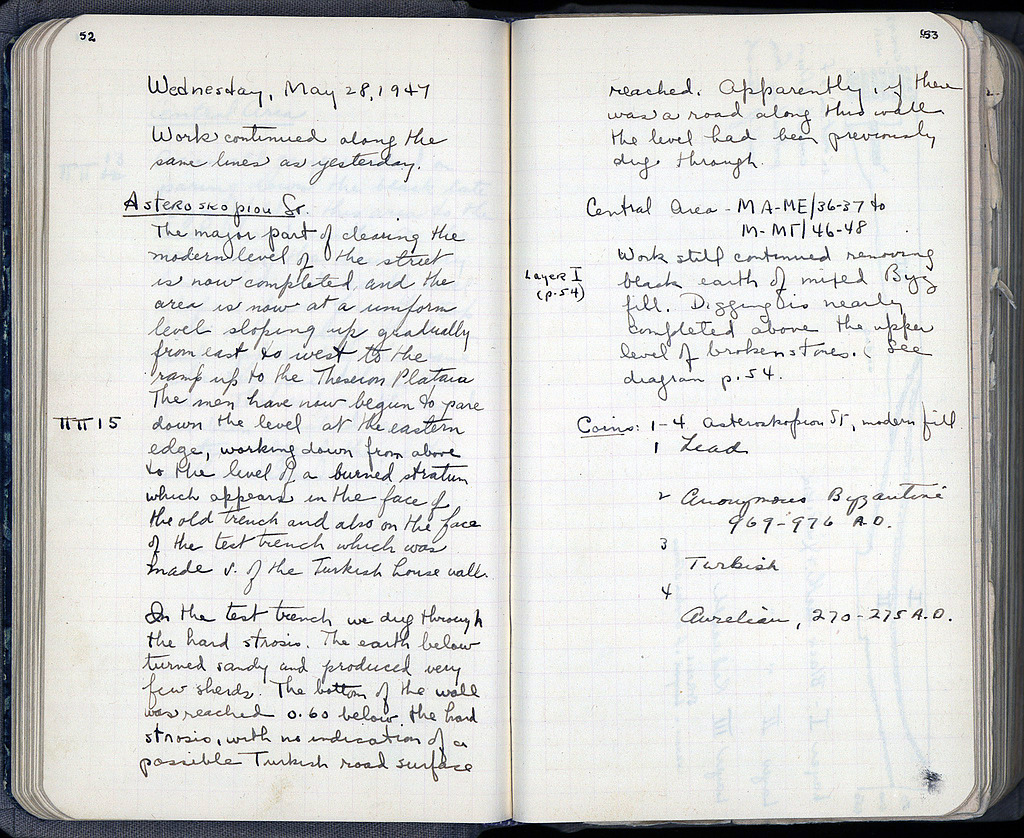 52
Wednesday, May 28, 1947
Work continued along the
same lines as yesterday.
Asteroskopiou St.
The major part of clearing the
modern level of the street
is now completed and the
area is now at a uniform
level sloping up gradually
from east to west to the
ramp up to the Theseion Plataia
The men have now begun to pare
ΠΠ 15
down the level at the eastern
edge, working down from above
to the level of a burned stratum
which appears in the face of
the old trench and also on the face
of the test trench which was
made S. of the Turkish house wall.
In the test trench we dug through
the hard strosis. The earth below
turned sandy and produced very
few sherds. The bottom of the wall
was reached 0.60 below the hard
strosis, with no indication of a
possible Turkish road surface
53
reached. Apparently, if there
was a road along this wall
the level had been previously
dug through.
Central Area - MA-ME/36-37 to
M-MΓ/46-48
Layer I
(p.54)
Work still continued removing
black earth of mixed Byz
fill. Digging is nearly
completed above the upper
level of broken stones. (See
diagram p.54.
Coins: 1-4. Asteroskopiou St, modern fill
1 Lead
2 Anonymous Byzantine
969-976 A.D.
3
Turkish
4
Aurelian, 270-275 A.D.